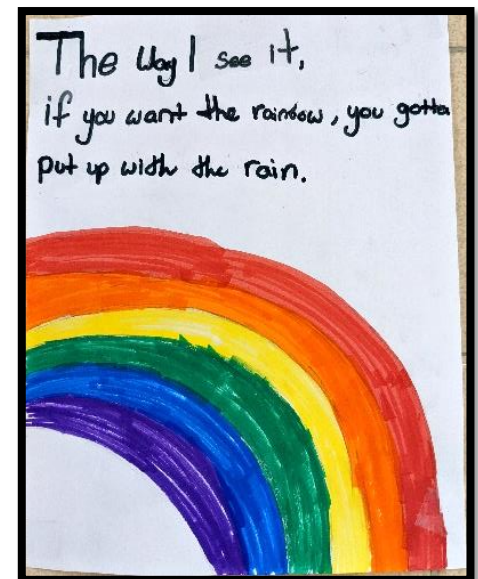 The Way I see it,
if you want the rainbow, you gotta
put up with the rain.